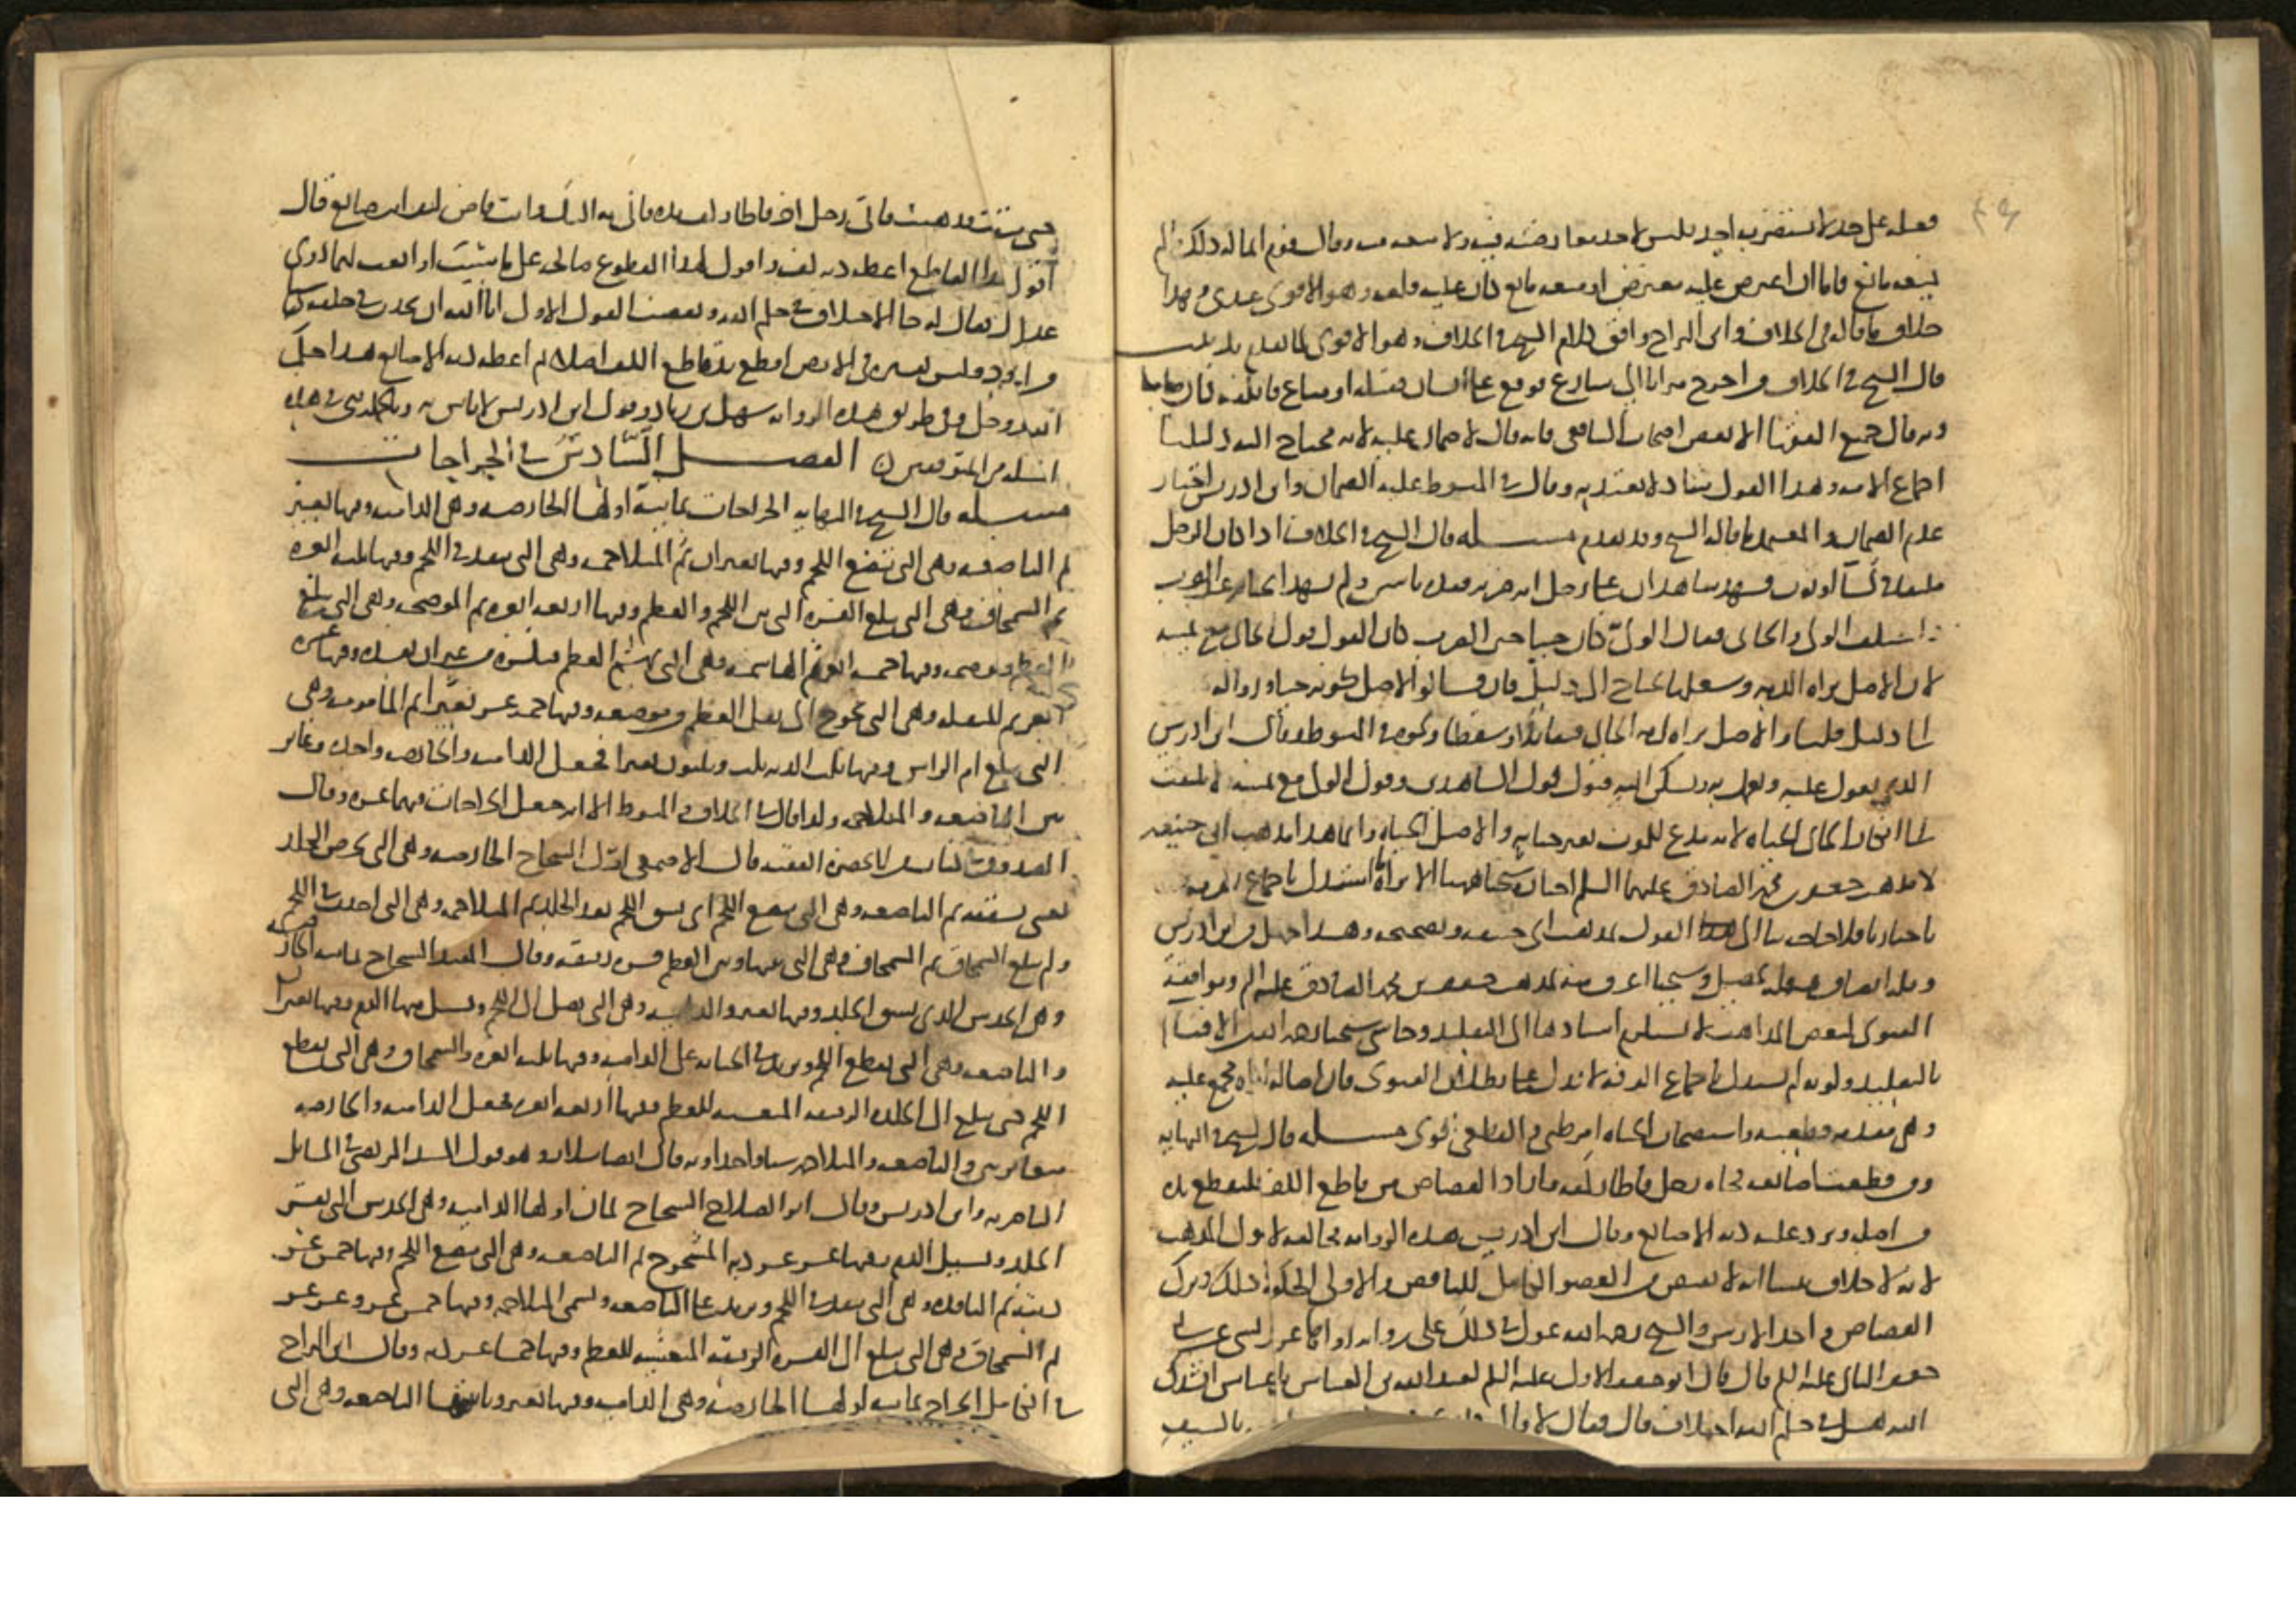 فعله على حد لا يستضر به احد فليس لاحد معارضته فيه ولا منعه منه وقال قوم انما له ذلك ما لم
يمنعه مانع فاما ان اعترض عليه معترض او منعه مانع كان عليه قلعه وهو الاقوى عندي وهذا
خلاف ما قاله في الخلاف وابن البراج وافق كلام الشيخ في الخلاف وهو الاقوى لما تقدم
قال الشيخ في الخلاف من اخرج ميزابا الى شارع فوقع على انسان فقتله او متاع فاتلفه كان ضامنا
وبه قال جميع الفقهاء الا بعض اصحاب الشافعي فانه قال لا ضمان عليه لانه محتاج اليه دليلنا
اجماع الامة وهذا القول شاذ لا يعتد به وقال في المبسوط عليه الضمان وابن ادريس اختار
عدم الضمان والمعتمد ما قاله الشيخ وقد تقدم مسلة قال الشيخ في الخلاف اذا كان الرجل
ملففا في كساء او ثوب فشهد شاهدان على رجل انه ضربه فقده باثنين ولم يشهدا الجناية غير الضرب
اختلف الولي والجاني فقال الولي كان حيا حين الضرب كان القول قول الجاني مع يمينه
لان الاصل براة الذمة وشغلها يحتاج الى دليل فان قالوا الاصل كونه حيا وزواله
يحتاج دليل قلنا والاصل براة ذمة الجاني فتعارضا وسقطا ونحوه في المبسوط وقال ابن ادريس
الذي يعول عليه ويعمل به ويسكن اليه قبول قول الشاهدين وقول الولي مع يمينه
لما انكار الجاني الحياة لانه مدع للموت بغير جناية والاصل الحياة وانما هذا مذهب ابي حنيفة
لا مذهب جعفر بن محمد الصادق عليهما السلم اختاره شيخنا هيهنا الا تراه ما استدل باجماع الفرقة
باخبارنا فلا حاجة بنا الى القول بمذهب ابي حنيفة وتصحيحه وهذا جهل من ابن ادريس
وقلة انصاف وعدم تحصيل وشيخنا اعرف منه بمذهب جعفر بن محمد الصادق عليه السلم وموافقة
الفتوى لبعض المذاهب لا يستلزم اسنادها الى التقليد وحاشى شيخنا رحمه الله الافتاء
بالتقليد وكونه لم يستدل باجماع الفرقة لا يدل على بطلان الفتوى فان اصالة البراة مجمع عليه
وهي مقدمة قطعية واستصحاب الحياة امر ظني والقطعي اقوى مسلة قال الشيخ في النهاية
ومن قطعت اصابعه فجاه رجل فاطار كفه فاراد القصاص من قاطع الكف فليقطع يده
من اصله ويرد عليه دية الاصابع وقال ابن ادريس هذه الرواية مخالفة لاصول المذهب
لانه لا خلاف بيننا انه لا يقتص من العضو الكامل للناقص والاولى الحكومة في ذلك وترك
القصاص واخذ الارش والشيخ رحمه الله عول في ذلك على رواية رواها عن
جعفر الثاني عليه السلم قال قال ابو جعفر الاول عليه السلم لعبد الله بن العباس يابن عباس انشدك
الله هل في حكم الله اختلاف قال فقال لا قال بالسيف
حتى سقطت فذهبت فاتى رجل اخر فاطار كف يده فاتي به اليك وانت قاض كيف انت صانع قال
اقول لهذا القاطع اعطه دية كف واقول لهذا المقطوع صالحه على ما شئت او ابعث لهما ذوي
عدل فقال له جا الاختلاف في حكم الله ونقضت القول الاول ابى الله ان يحدث في خلقه شيا
من الحدود وليس تفسيره في الارض اقطع يد قاطع الكف اصلا ثم اعطه دية الاصابع هذا حكم
الله عز وجل وفي طريق هذه الرواية سهل بن زياد وقول ابن ادريس لا باس به ونحن في هذه
المسلة من المتوقفين الفصل السادس في الجراحات
مسلة قال الشيخ في النهاية الجراحات ثمانية اولها الحارصة وهي الدامية وفيها بعير
ثم الباضعة وهي التي تبضع اللحم وفيها بعيران ثم المتلاحمة وهي التي تنفذ في اللحم وفيها ثلث ابعرة
ثم السمحاق وهي التي تبلغ القشرة التي بين اللحم والعظم وفيها اربعة ابعرة ثم الموضحة وهي التي تبلغ
العظم وتوضحه وفيها خمسة ابعرة ثم الهاشمة وهي التي تهشم العظم فتكسره من غير ان تفسده وفيها عشرة
ابعرة ثم المنقلة وهي التي تحوج الى نقل العظم من موضعه وفيها خمسة عشر بعيرا ثم المامومة وهي
التي تبلغ ام الراس وفيها ثلث الدية ثلثة وثلثون بعيرا فجعل الدامية والحارصة واحدة وغاير
بين الباضعة والمتلاحمة وكذا قال في الخلاف والمبسوط الا انه جعل الجراحات فيهما عشرة وقال
الصدوق في كتاب من لا يحضره الفقيه قال الاصمعي اول الشجاج الحارصة وهي التي تحرص الجلد
يعني تشققه ثم الباضعة وهي التي تبضع اللحم اي تشق اللحم بعد الجلد ثم المتلاحمة وهي التي اخذت في اللحم
ولم تبلغ السمحاق ثم السمحاق وهي التي بينها وبين العظم قشرة رقيقة وقال المفيد الشجاج ثمانية الحارصة
وهي الخدش الذي يشق الجلد وفيها بعير والدامية وهي التي تصل الى اللحم ويسيل منها الدم وفيها بعيران
والباضعة وهي التي تقطع اللحم وتزيد في الجناية على الدامية وفيها ثلثة ابعرة والسمحاق وهي التي تقطع
اللحم حتى تبلغ الى الجلدة الرقيقة المغشية للعظم وفيها اربعة ابعرة فجعل الدامية والحارصة
متغايرتين والباضعة والمتلاحمة شيا واحدا وبه قال ايضا سلار وهو قول السيد المرتضى في المسائل
الناصرية وابن ادريس وقال ابو الصلاح الشجاج ثمان اولها الدامية وهي الخدش التي تقشر
الجلد وتسيل الدم وفيها عشر عشر دية المشجوج ثم الباضعة وهي التي تبضع اللحم وفيها خمس عشر
ديته ثم النافذة وهي التي تنفذ في اللحم وتزيد على الباضعة وتسمى المتلاحمة وفيها خمس عشر وعشر عشر
ثم السمحاق وهي التي تبلغ الى القشرة الرقيقة المغشية للعظم وفيها خمسا عشر ديه وقال ابن البراج
في الكامل الجراح ثمانية اولها الحارصة وهي الدامية وفيها بعير وثانيها الباضعة وهي التي